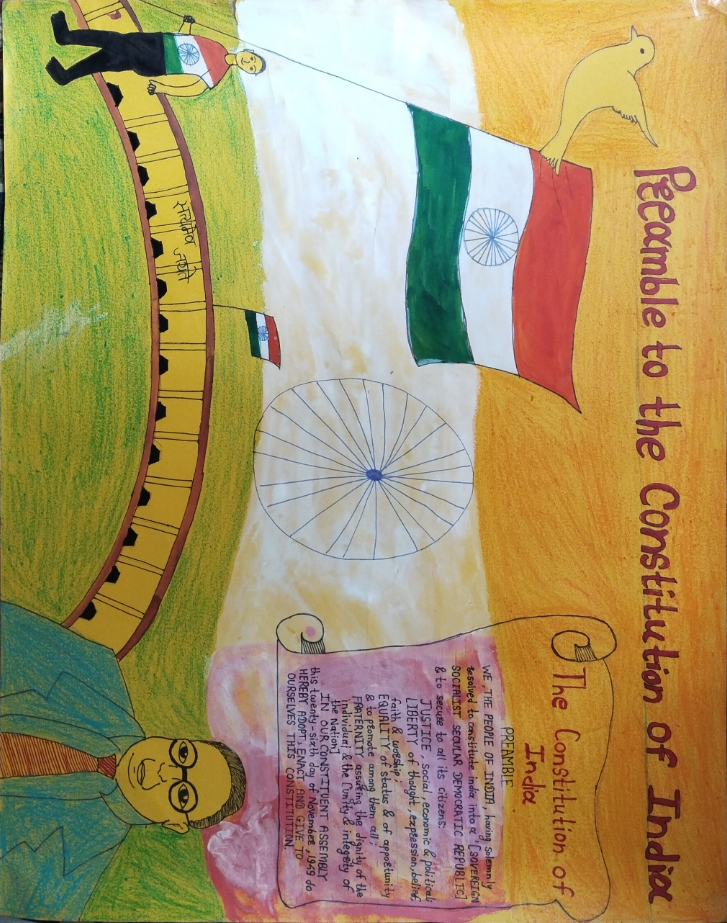 Preamble to the Constitution of India
The Constitution of
India
PREAMBLE
WE, THE PEOPLE OF INDIA, having solemnly
resolved to constitute India into a [SOVEREIGN
SOCIALIST SECULAR DEMOCRATIC REPUBLIC]
& to secure to all its citizens:
JUSTICE, social, economic & political;
LIBERTY of thought, expression, belief,
faith & worship;
EQUALITY of status & of opportunity
& to promote among them all;
FRATERNITY assuring the dignity of the
individual & the [Unity & integrity of
the Nation]
IN OUR CONSTITUENT ASSEMBLY
this twenty-sixth day of November, 1949 do
HEREBY ADOPT, ENACT AND GIVE TO
OURSELVES THIS CONSTITUTION.
सत्यमेव जयते